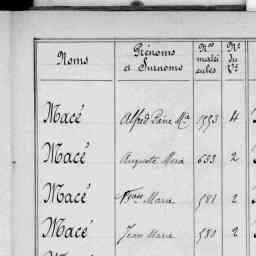 Noms Prénoms et Surnoms Nos matri cules No du Vol.
Macé Alfred Pierre Mie 1553 4
Macé Auguste Marie 653 2
Macé Fçois Marie 981 2
Macé Jean Marie 980 2